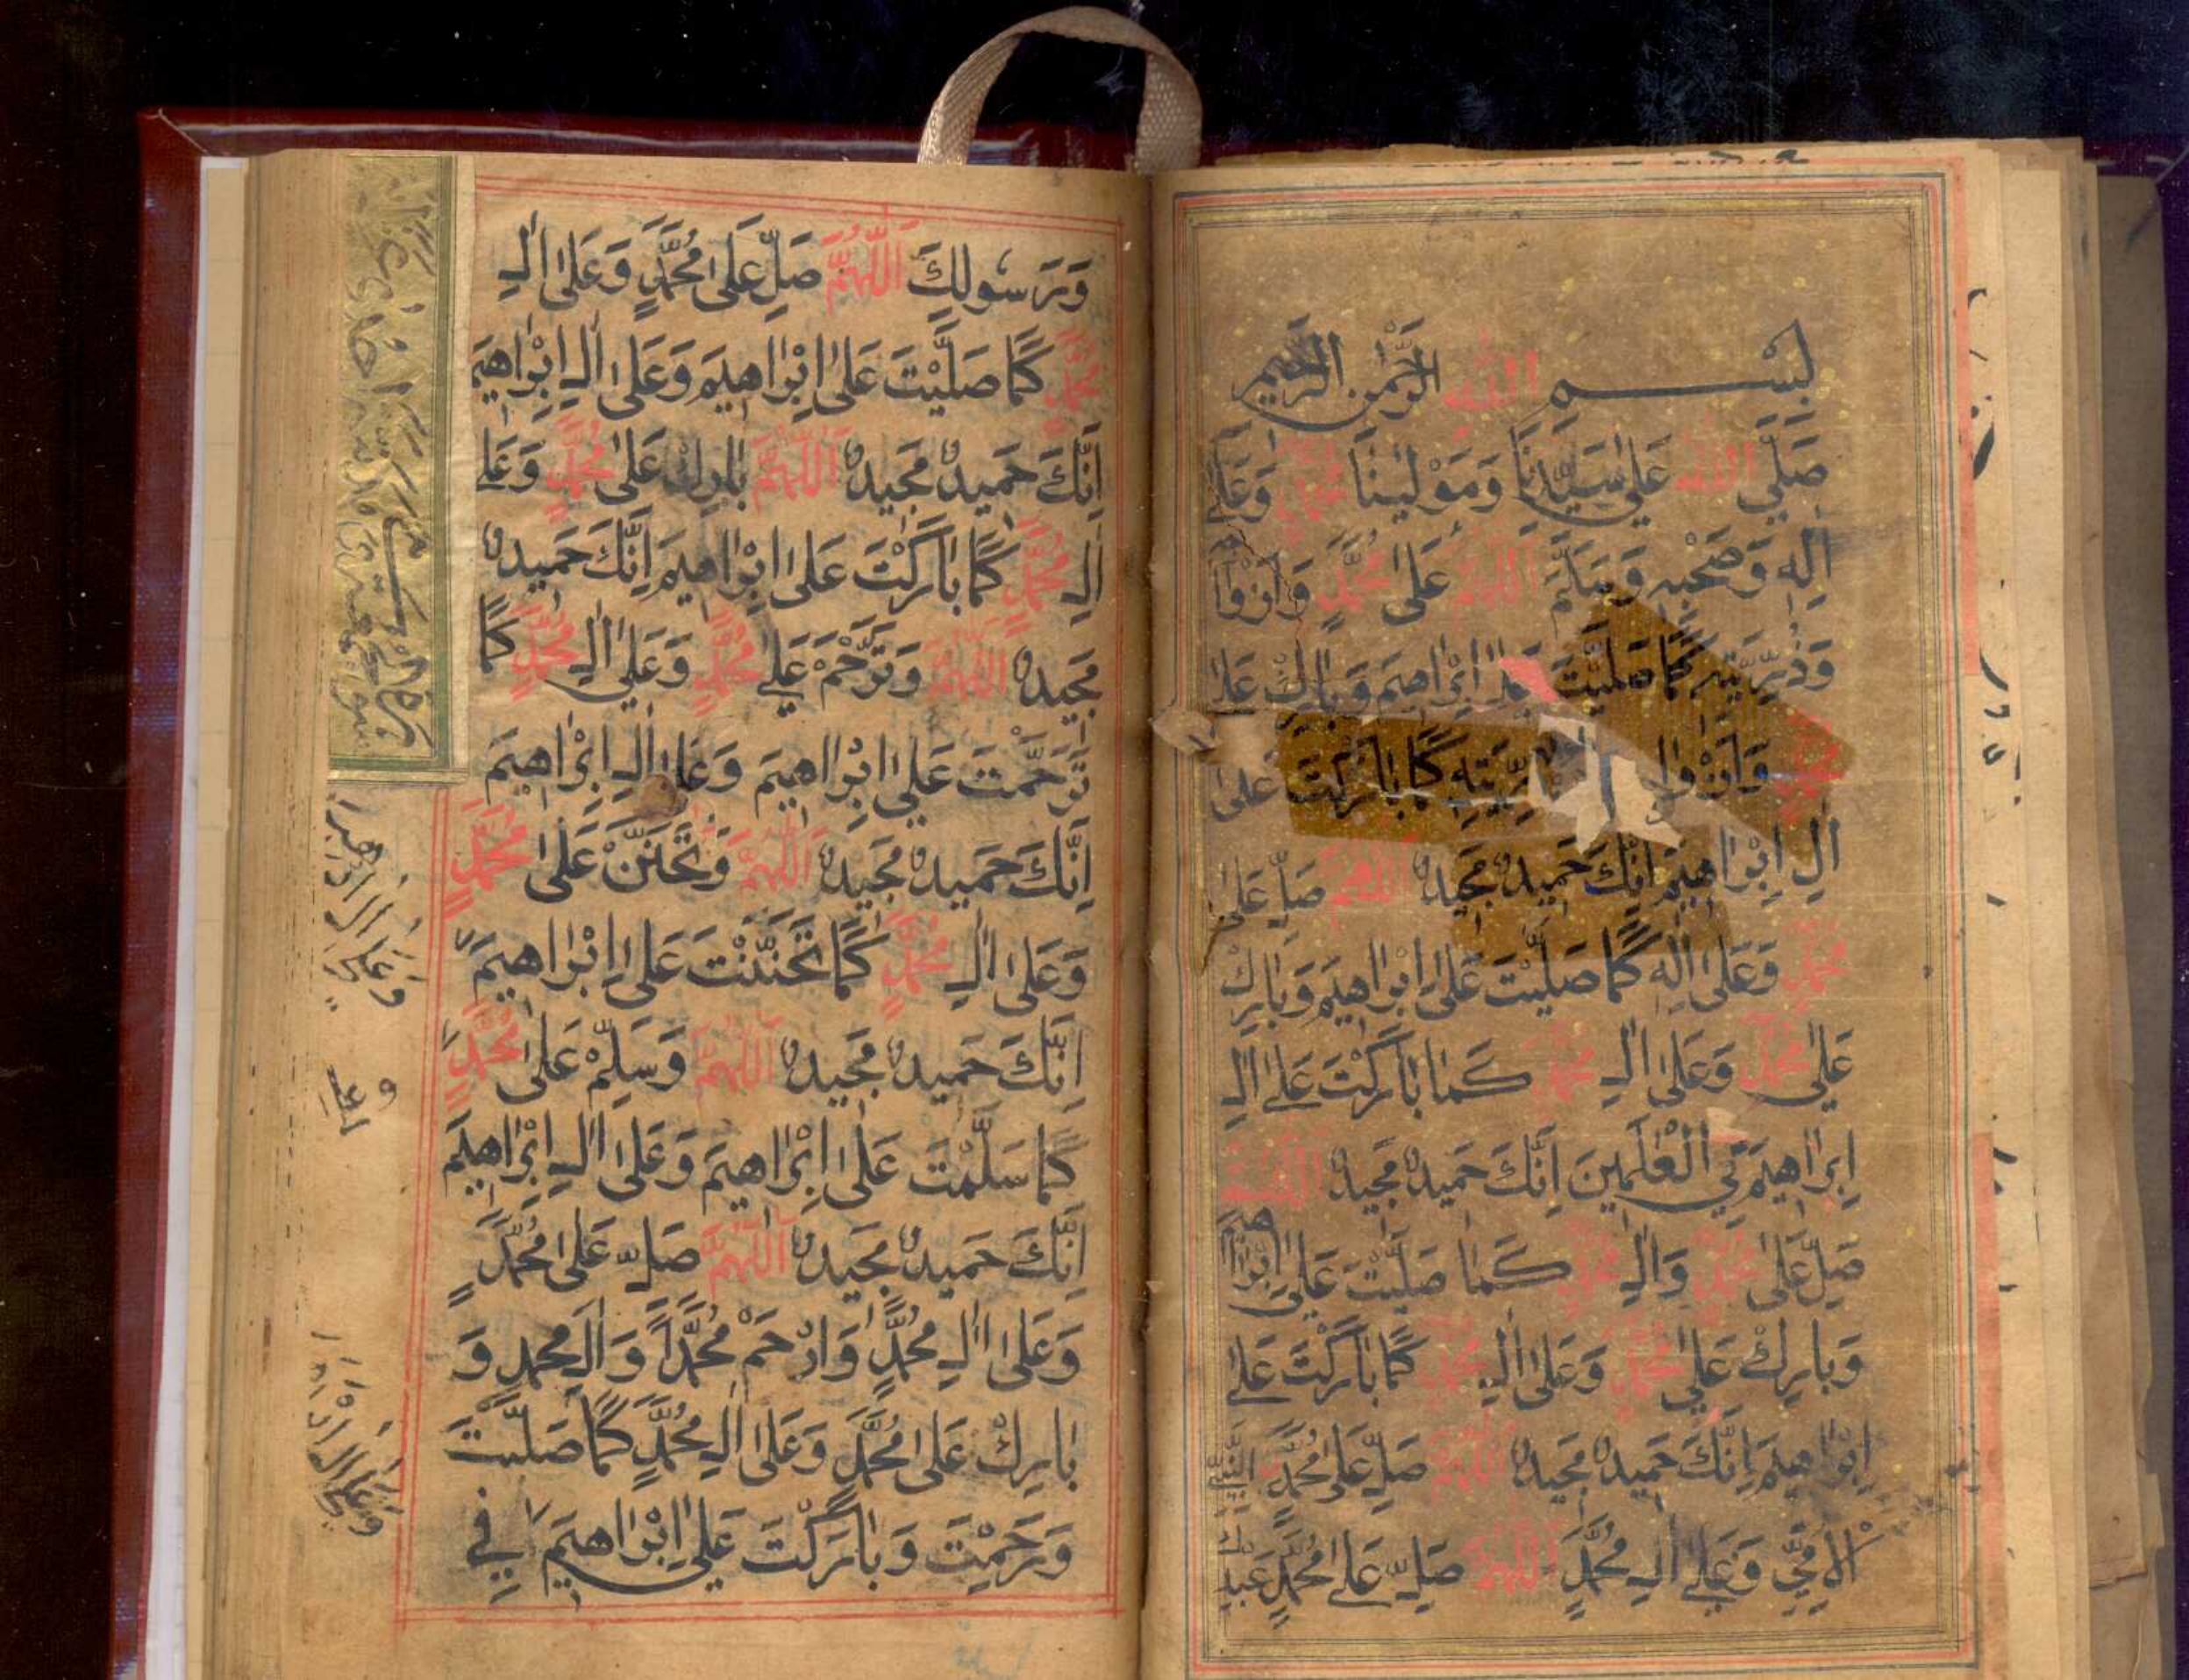 بِسْمِ اللّٰهِ الرَّحْمٰنِ الرَّحِيْمِ
صَلَّي اللّٰهُ عَلٰي سَيِّدِنَا وَمَوْلٰينَا مُحَمَّدٍ وَعَلٰى
اٰلِهٖ وَصَحْبِهٖ وَسَلَّمَ اَللّٰهُمَّ عَلٰى مُحَمَّدٍ وَاَزْوَا
وَذُرِّيَّتِهٖ كَمَا صَلَّيْتَ عَلٰى اِبْرَاهِيْمَ وَبَارِكْ عَلٰى
مُحَمَّدٍ وَاَزْوَا رِّيَّتِهٖ كَمَا بَارَكْتَ عَلٰى
اٰلِ اِبْرَاهِيْمَ اِنَّكَ حَمِيْدٌ مَجِيْدٌ اَللّٰهُمَّ صَلِّ عَلٰى
مُحَمَّدٍ وَعَلٰى اٰلِهٖ كَمَا صَلَّيْتَ عَلٰى اِبْرَاهِيْمَ وَبَارِكْ
عَلٰي مُحَمَّدٍ وَعَلٰى اٰلِ مُحَمَّدٍ كَمَا بَارَكْتَ عَلٰى اٰلِ
اِبْرَاهِيْمَ فِي الْعٰلَمِيْنَ اِنَّكَ حَمِيْدٌ مَجِيْدٌ اَللّٰهُمَّ
صَلِّ عَلٰى مُحَمَّدٍ وَاٰلِ مُحَمَّدٍ كَمَا صَلَّيْتَ عَلٰى اِبْرَاهِيْمَ
وَبَارِكْ عَلٰي مُحَمَّدٍ وَعَلٰى اٰلِ مُحَمَّدٍ كَمَا بَارَكْتَ عَلٰى
اِبْرَاهِيْمَ اِنَّكَ حَمِيْدٌ مَجِيْدٌ اَللّٰهُمَّ صَلِّ عَلٰى مُحَمَّدٍ النَّبِيِّ
الْاُمِّيِّ وَعَلٰى اٰلِ مُحَمَّدٍ اَللّٰهُمَّ صَلِّ عَلٰى مُحَمَّدٍ عَبْدِكَ
وَرَسُوْلِكَ اَللّٰهُمَّ صَلِّ عَلٰى مُحَمَّدٍ وَعَلٰى اٰلِ
مُحَمَّدٍ كَمَا صَلَّيْتَ عَلٰى اِبْرَاهِيْمَ وَعَلٰى اٰلِ اِبْرَاهِيْمَ
اِنَّكَ حَمِيْدٌ مَجِيْدٌ اَللّٰهُمَّ بَارِكْ عَلٰى مُحَمَّدٍ وَعَلٰى
اٰلِ مُحَمَّدٍ كَمَا بَارَكْتَ عَلٰى اِبْرَاهِيْمَ اِنَّكَ حَمِيْدٌ
مَجِيْدٌ اَللّٰهُمَّ وَتَرَحَّمْ عَلٰي مُحَمَّدٍ وَعَلٰي اٰلِ مُحَمَّدٍ كَمَا
تَرَحَّمْتَ عَلٰي اِبْرَاهِيْمَ وَعَلٰى اٰلِ اِبْرَاهِيْمَ
اِنَّكَ حَمِيْدٌ مَجِيْدٌ اَللّٰهُمَّ وَتَحَنَّنْ عَلٰى مُحَمَّدٍ
وَعَلٰى اٰلِ مُحَمَّدٍ كَمَا تَحَنَّنْتَ عَلٰى اِبْرَاهِيْمَ
اِنَّكَ حَمِيْدٌ مَجِيْدٌ اَللّٰهُمَّ وَسَلِّمْ عَلٰى مُحَمَّدٍ
كَمَا سَلَّمْتَ عَلٰى اِبْرَاهِيْمَ وَعَلٰى اٰلِ اِبْرَاهِيْمَ
اِنَّكَ حَمِيْدٌ مَجِيْدٌ اَللّٰهُمَّ صَلِّ عَلٰى مُحَمَّدٍ
وَعَلٰى اٰلِ مُحَمَّدٍ وَارْحَمْ مُحَمَّدًا وَاٰلَ مُحَمَّدٍ وَ
بَارِكْ عَلٰى مُحَمَّدٍ وَعَلٰى اٰلِ مُحَمَّدٍ كَمَا صَلَّيْتَ
وَرَحِمْتَ وَبَارَكْتَ عَلٰي اِبْرَاهِيْمَ فِي